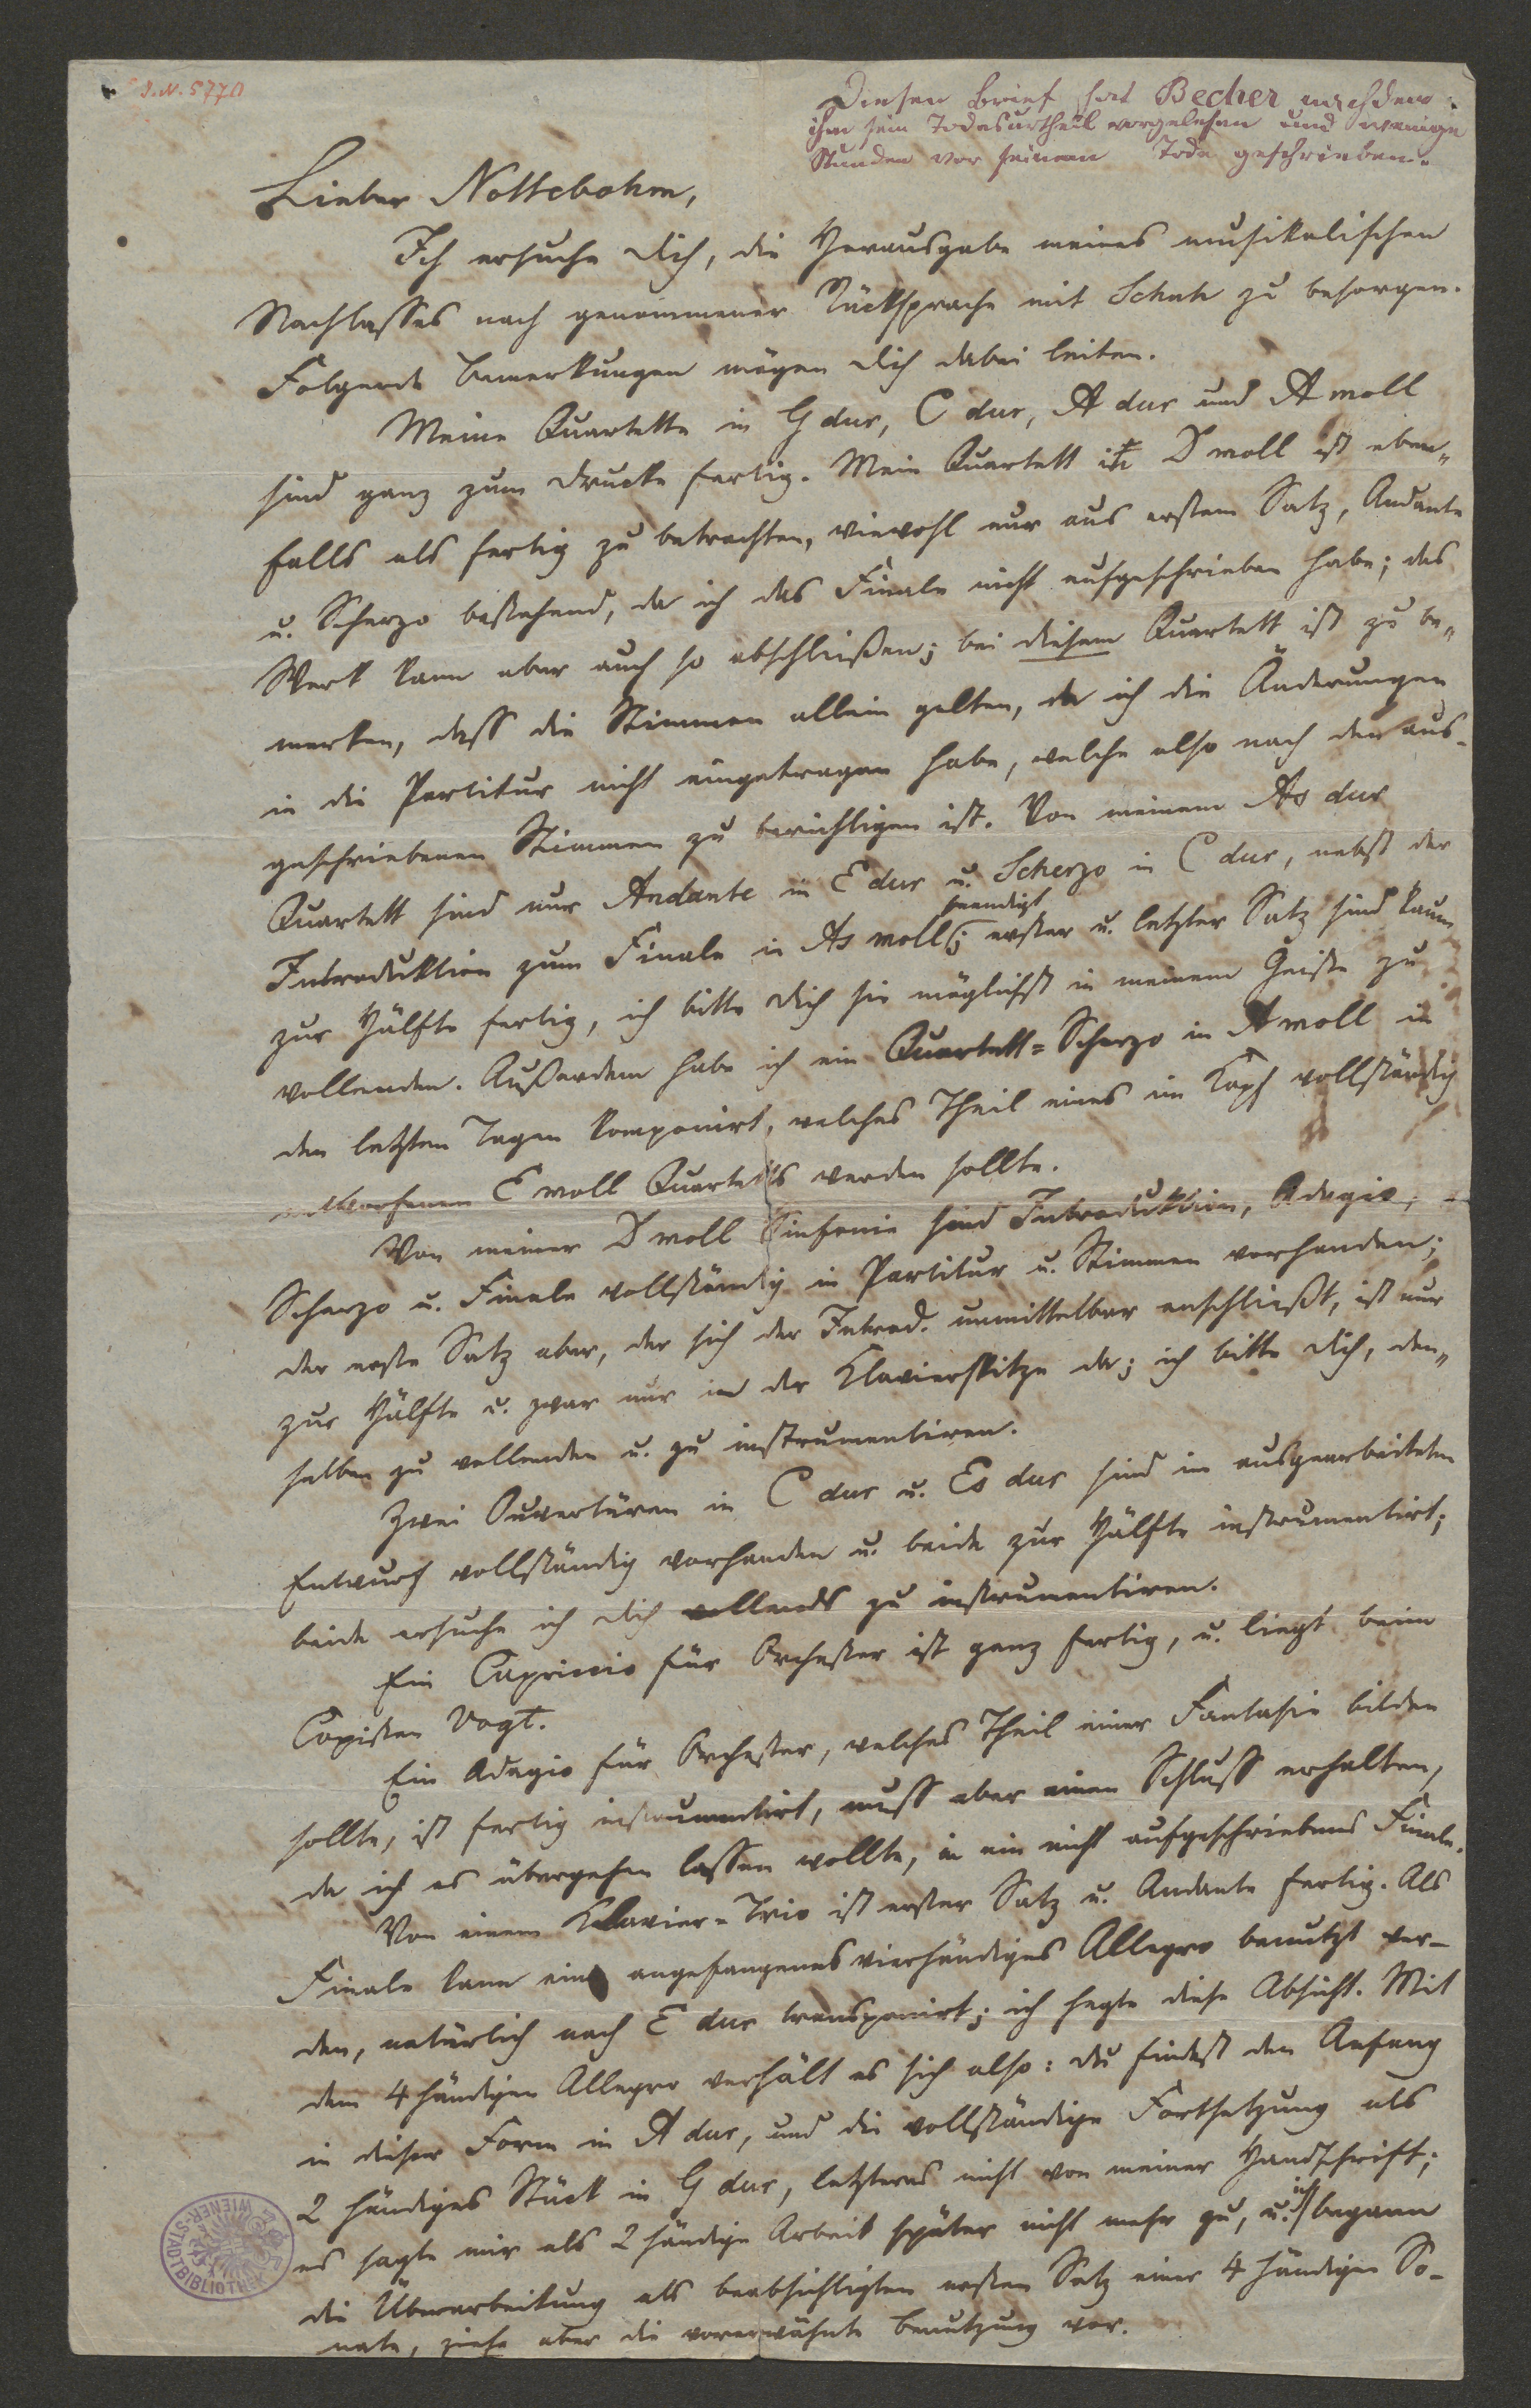 I.N. 5770
Diesen Brief hat Becher nachdem
ihm sein Todesurtheil vorgelesen und wenige
Stunden vor seinem Tode geschrieben.
Lieber Nottebohm,
Ich ersuche dich, die Herausgabe meines musikalischen
Nachlasses nach genommener Rücksprache mit Schuh zu besorgen.
Folgende Bemerkungen mögen dich dabei leiten.
Meine Quartette in G dur, C dur, A dur und A moll
sind ganz zum Drucke fertig. Mein Quartett in D moll ist eben„
falls als fertig zu betrachten, wiewohl nur aus erstem Satz, Andante
u. Scherzo bestehend, da ich das Finale nicht aufgeschrieben habe; das
Werk kann aber auch so abschließen; bei diesem Quartett ist zu be„
merken, dass die Stimmen allein gelten, da ich die Änderungen
in die Partitur nicht eingetragen habe, welche also nach den aus-
geschriebenen Stimmen zu berichtigen ist. Von meinem As dur
Quartett sind nur Andante in E dur u. Scherzo in C dur, nebst der
beendigt
Introduktion zum Finale in As moll; erster u. letzter Satz sind kaum
zur Hälfte fertig, ich bitte dich sie möglichst in meinem Geiste zu
vollenden. Außerdem habe ich ein Quartett=Scherzo in A moll in
den letzten Tagen komponirt, welches Theil eines im Kopf vollständig
entworfenen E moll Quartetts werden sollte.
Von meiner D moll Sinfonie sind Introduktion, Adagio,
Scherzo u. Finale vollständig in Partitur u. Stimmen vorhanden;
der erste Satz aber, der sich der Introd. unmittelbar anschließt, ist nur
zur Hälfte u. zwar nur in der Klavierskitze da; ich bitte dich, den„
selben zu vollenden u. zu instrumentiren.
Zwei Ouvertüren in C dur u. Es dur sind im ausgearbeiteten
Entwurf vollständig vorhanden u. beide zur Hälfte instrumentirt;
beide ersuche ich dich vollends zu instrumentiren.
Ein Capriccio für Orchester ist ganz fertig, u. liegt beim
Copisten Vogt.
Ein Adagio für Orchester, welches Theil einer Fantasie bilden
sollte, ist fertig instrumentirt, muss aber einen Schluss erhalten,
da ich es übergehen lassen wollte, in ein nicht aufgeschriebenes Finale.
Von einem Klavier=Trio ist erster Satz u. Andante fertig. Als
Finale kann ein angefangenes vierhändiges Allegro benutzt wer-
den, natürlich nach E dur transponirt; ich hegte diese Absicht. Mit
dem 4 händigen Allegro verhält es sich also: du findest den Anfang
in dieser Form in A dur, und die vollständige Fortsetzung als
2 händiges Stück in G dur, letzteres nicht von meiner Handschrift;
es sagte mir als 2 händige Arbeit später nicht mehr zu, u. ich begann
die Überarbeitung als beabsichtigten ersten Satz einer 4 händigen So-
nate, ziehe aber die vorerwähnte Benutzung vor.
WIENER-STADTBIBLIOTHEK